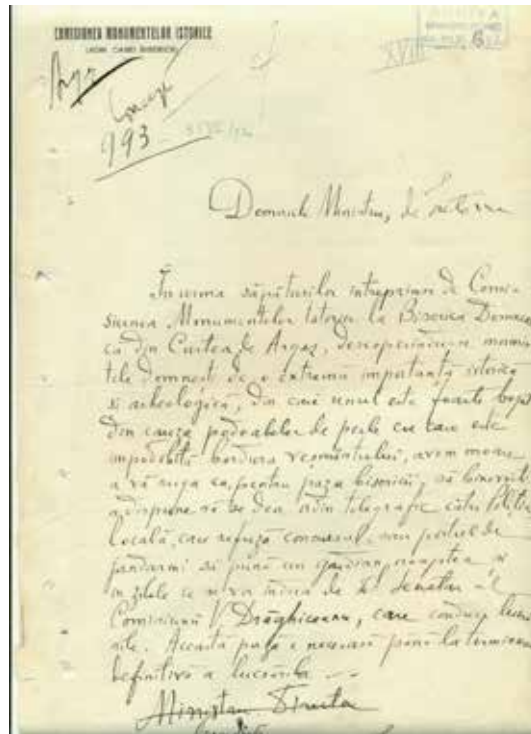 COMISIUNEA MONUMENTELOR ISTORICE
XVIII
6
993
Domnule Ministru, de Interne
În urma săpăturilor întreprinse de Comi-
siunea Monumentelor Istorice la Biserica Domneas-
că din Curtea de Argeș, descoperindu-se mormin-
tele domnești de o extremă importanță istorică
și arheologică, din cari unul este foarte bogat
din cauza podoabelor de perle cu care este
împodobită bordura veșmântului, avem onoare
a vă ruga ca, pentru paza bisericii, să binevoiți
a dispune să se dea ordin telegrafic către Poliția
locală, care refuză concursul, sau postul de
jandarmi să pună un gardian noaptea și
în zilele ce va indica de D. Secretar al
Comisiunii V. Drăghiceanu, care conduce lucră-
rile. Această pază e necesară până la terminarea
definitivă a lucrărilor
Ministru